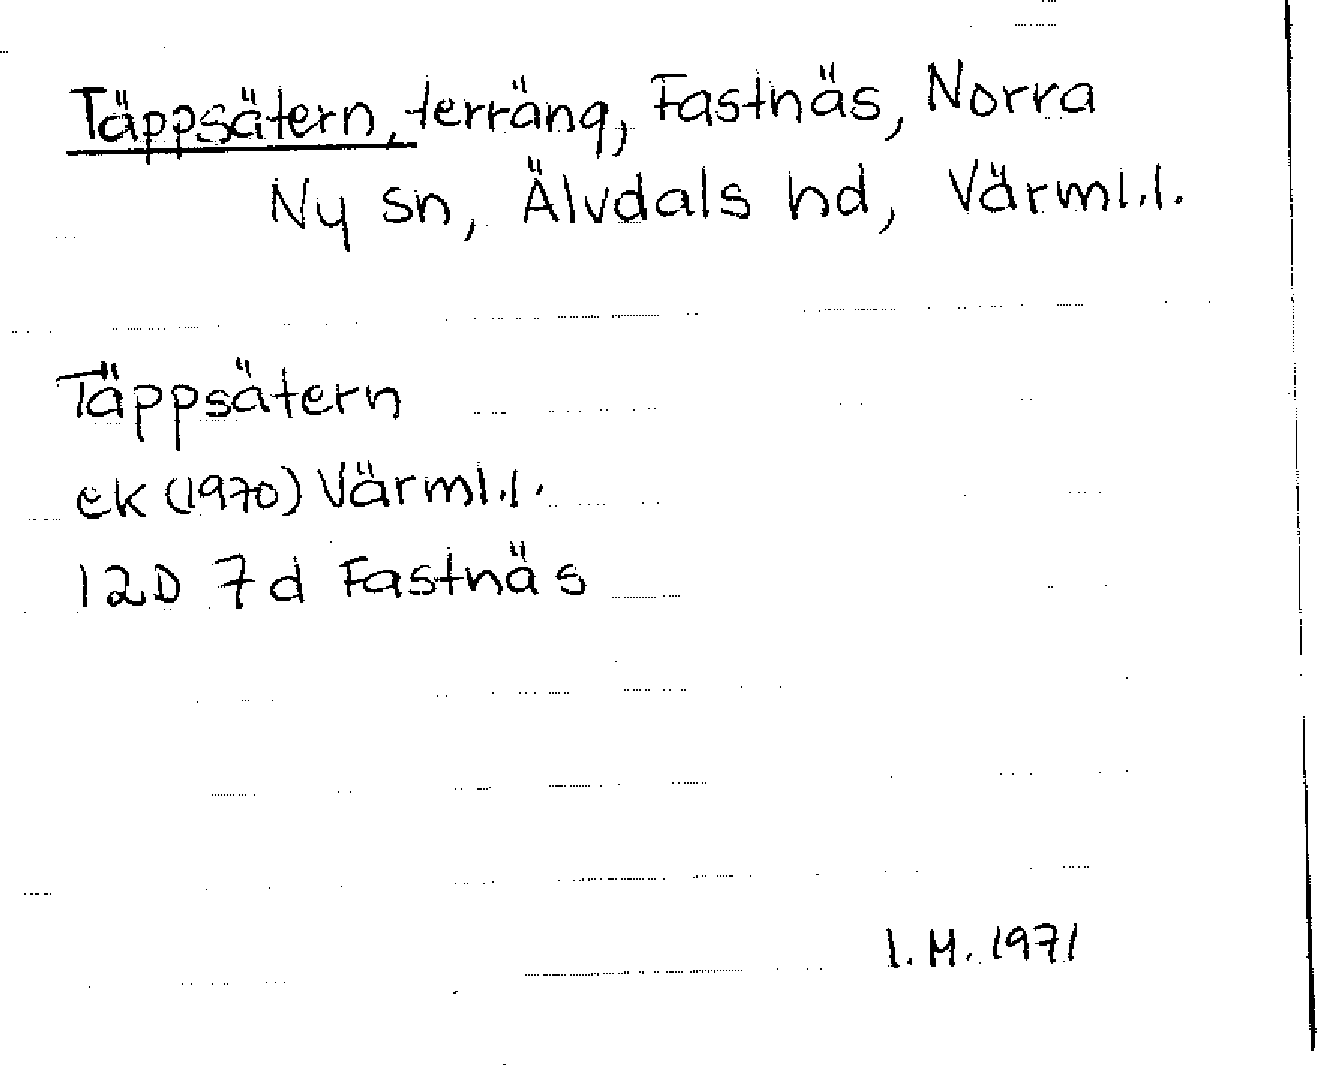 Täppsätern, terräng, Fastnäs, Norra
Ny sn, Älvdals hd, Värml.l.
Täppsätern
ek (1970) Värml.l.
12D 7d Fastnäs
I.M. 1971